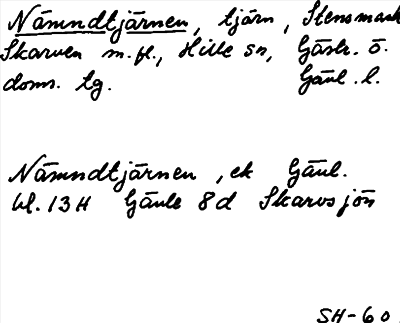 Nämndtjärnen, tjärn, Stensmark
Skarven m.fl., Hille sn, Gästr. ö.
doms. tg. Gävl. l.
Nämndtjärnen, ek Gävl.
bl. 13H Gävle 8d Skarvsjön
SH-60